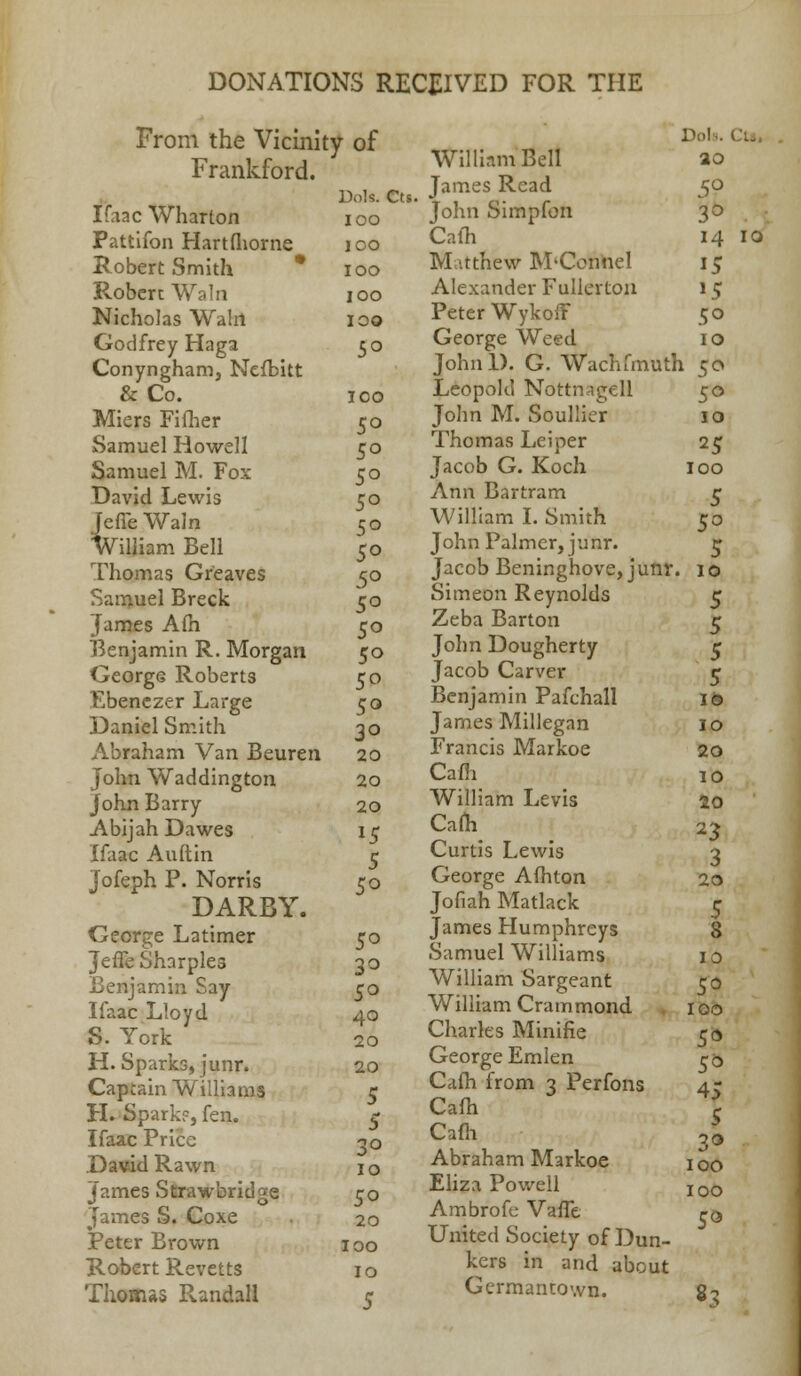 DONATIONS RECEIVED FOR THE
From the Vicinity of
Frankford.
Dols. Cts.
Iſaac Wharton 100
Pattiſon Hartſhorne 100
Robert Smith 100
Robert Waln 100
Nicholas Waln 100
Godfrey Haga 50
Conyngham, Neſbitt
& Co. 100
Miers Fiſher 50
Samuel Howell 50
Samuel M. Fox 50
David Lewis 50
Jeſſe Waln 50
William Bell 50
Thomas Greaves 50
Samuel Breck 50
James Aſh 50
Benjamin R. Morgan 50
George Roberts 50
Ebenezer Large 50
Daniel Smith 30
Abraham Van Beuren 20
John Waddington 20
John Barry 20
Abijah Dawes 15
Iſaac Auſtin 5
Joſeph P. Norris 50
DARBY.
George Latimer 50
Jeſſe Sharples 30
Benjamin Say 50
Iſaac Lloyd 40
S. York 20
H. Sparks, junr. 20
Captain Williams 5
H. Sparks, ſen. 5
Iſaac Price 30
David Rawn 10
James Strawbridge 50
James S. Coxe 20
Peter Brown 100
Robert Revetts 10
Thomas Randall 5
Dols. Cts.
William Bell 20
James Read 50
John Simpſon 30
Caſh 14 10
Matthew M‘Connel 15
Alexander Fullerton 15
Peter Wykoff 50
George Weed 10
John D. G. Wachſmuth 50
Leopold Nottnagell 50
John M. Soullier 10
Thomas Leiper 25
Jacob G. Koch 100
Ann Bartram 5
William I. Smith 50
John Palmer, junr. 5
Jacob Beninghove, junr. 10
Simeon Reynolds 5
Zeba Barton 5
John Dougherty 5
Jacob Carver 5
Benjamin Paſchall 10
James Millegan 10
Francis Markoe 20
Caſh 10
William Levis 20
Caſh 23
Curtis Lewis 3
George Aſhton 20
Joſiah Matlack 5
James Humphreys 8
Samuel Williams 10
William Sargeant 50
William Crammond 100
Charles Minifie 50
George Emlen 50
Caſh from 3 Perſons 45
Caſh 5
Caſh 30
Abraham Markoe 100
Eliza Powell 100
Ambroſe Vaſſe 50
United Society of Dun-
kers in and about
Germantown. 83